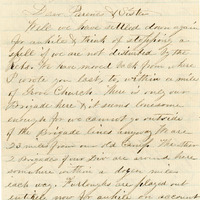 Dear Parents & Sister
Well we have settled down again
for awhile & think of stopping a
spell if we are not disturbed by the
Rebs. We have moved back from where
I wrote you last, to within a miles
of Grove Church. There is only our
Brigade here & it seems lonesome
enough for we cannot go outside
of the Brigade lines anyway. We are
23 miles from our old Camp. The other
2 Brigades of our Div are around here
somewhere within a dozen miles
each way. Furloughs are played out
entirely now for awhile on account